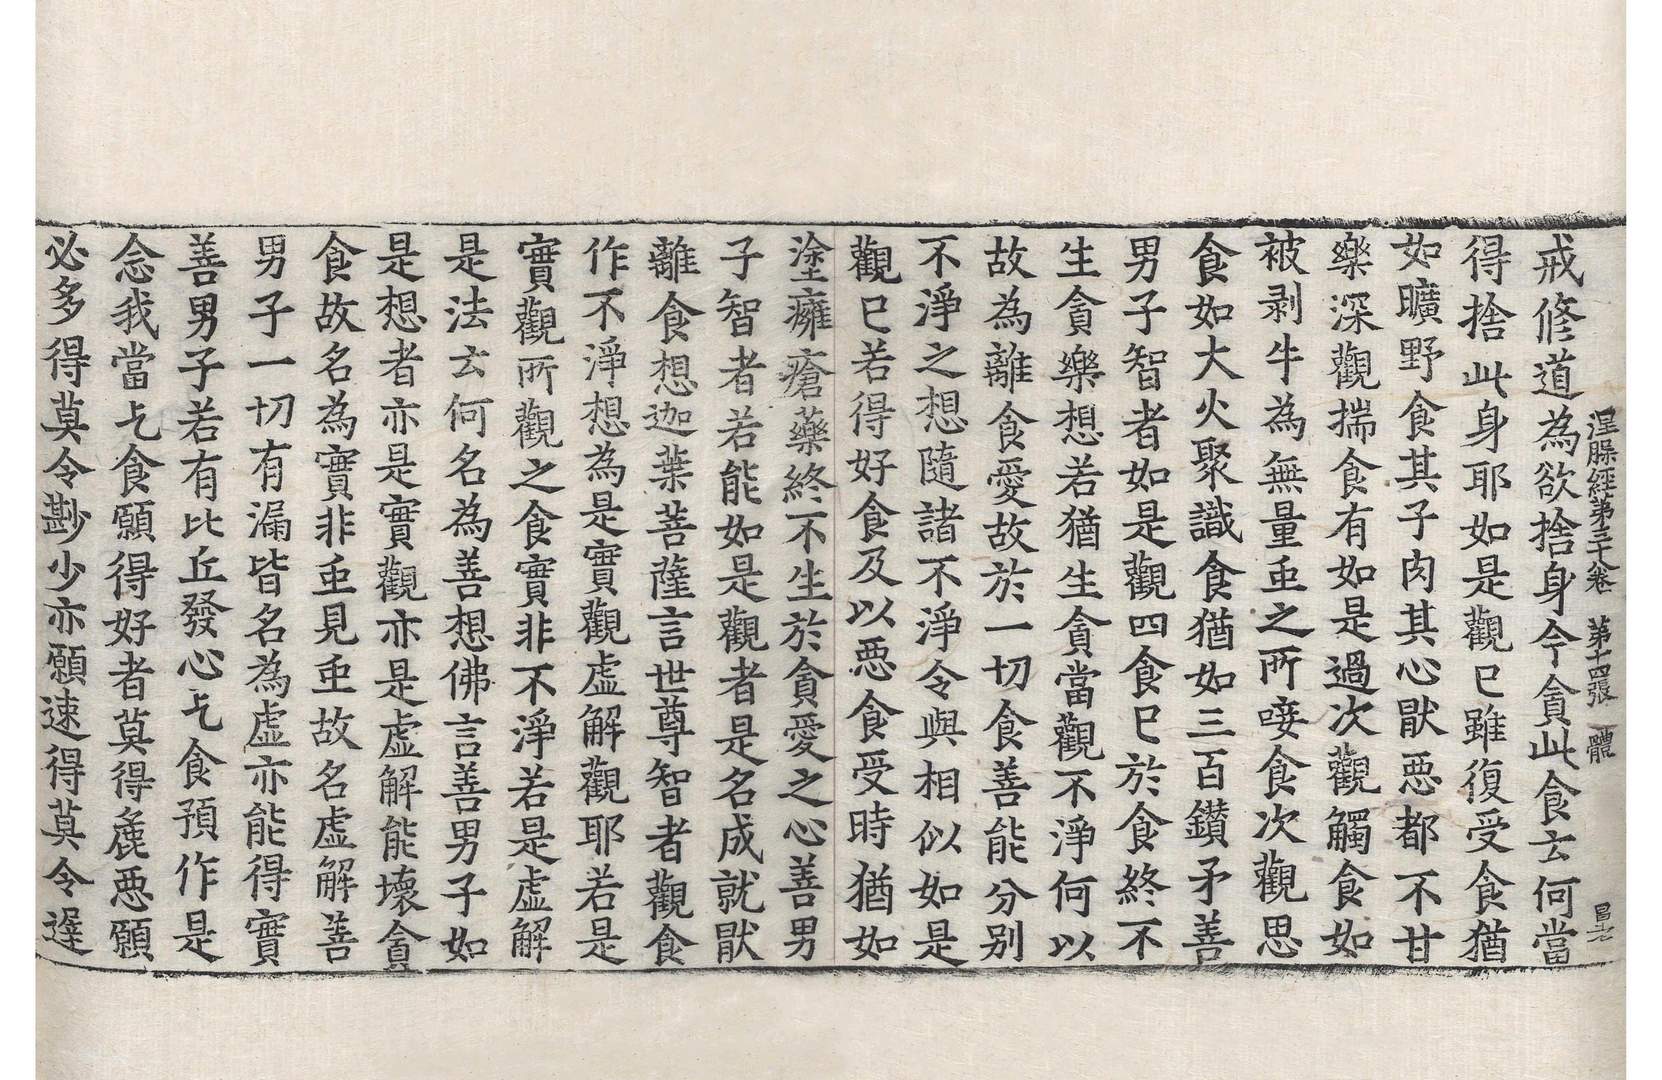 涅槃經第三十八卷 第十四張 體
戒修道為欲捨身今貪此食云何當
得捨此身耶如是觀已雖復受食猶
如曠野食其子肉其心猒惡都不甘
樂深觀揣食有如是過次觀觸食如
被剥牛為無量虫之所唼食次觀思
食如大火聚識食猶如三百鑽矛善
男子智者如是觀四食已於食終不
生貪樂想若猶生貪當觀不淨何以
故為離食愛故於一切食善能分别
不淨之想隨諸不淨令與相似如是
觀已若得好食及以惡食受時猶如
塗癰瘡藥終不生於貪愛之心善男
子智者若能如是觀者是名成就猒
離食想迦葉菩薩言世尊智者觀食
作不淨想為是實觀虛解觀耶若是
實觀所觀之食實非不淨若是虛解
是法云何名為善想佛言善男子如
是想者亦是實觀亦是虛解能壞貪
食故名為實非虫見虫故名虛解善
男子一切有漏皆名為虛亦能得實
善男子若有比丘發心乞食預作是
念我當乞食願得好者莫得麁惡願
必多得莫令尠少亦願速得莫令遲